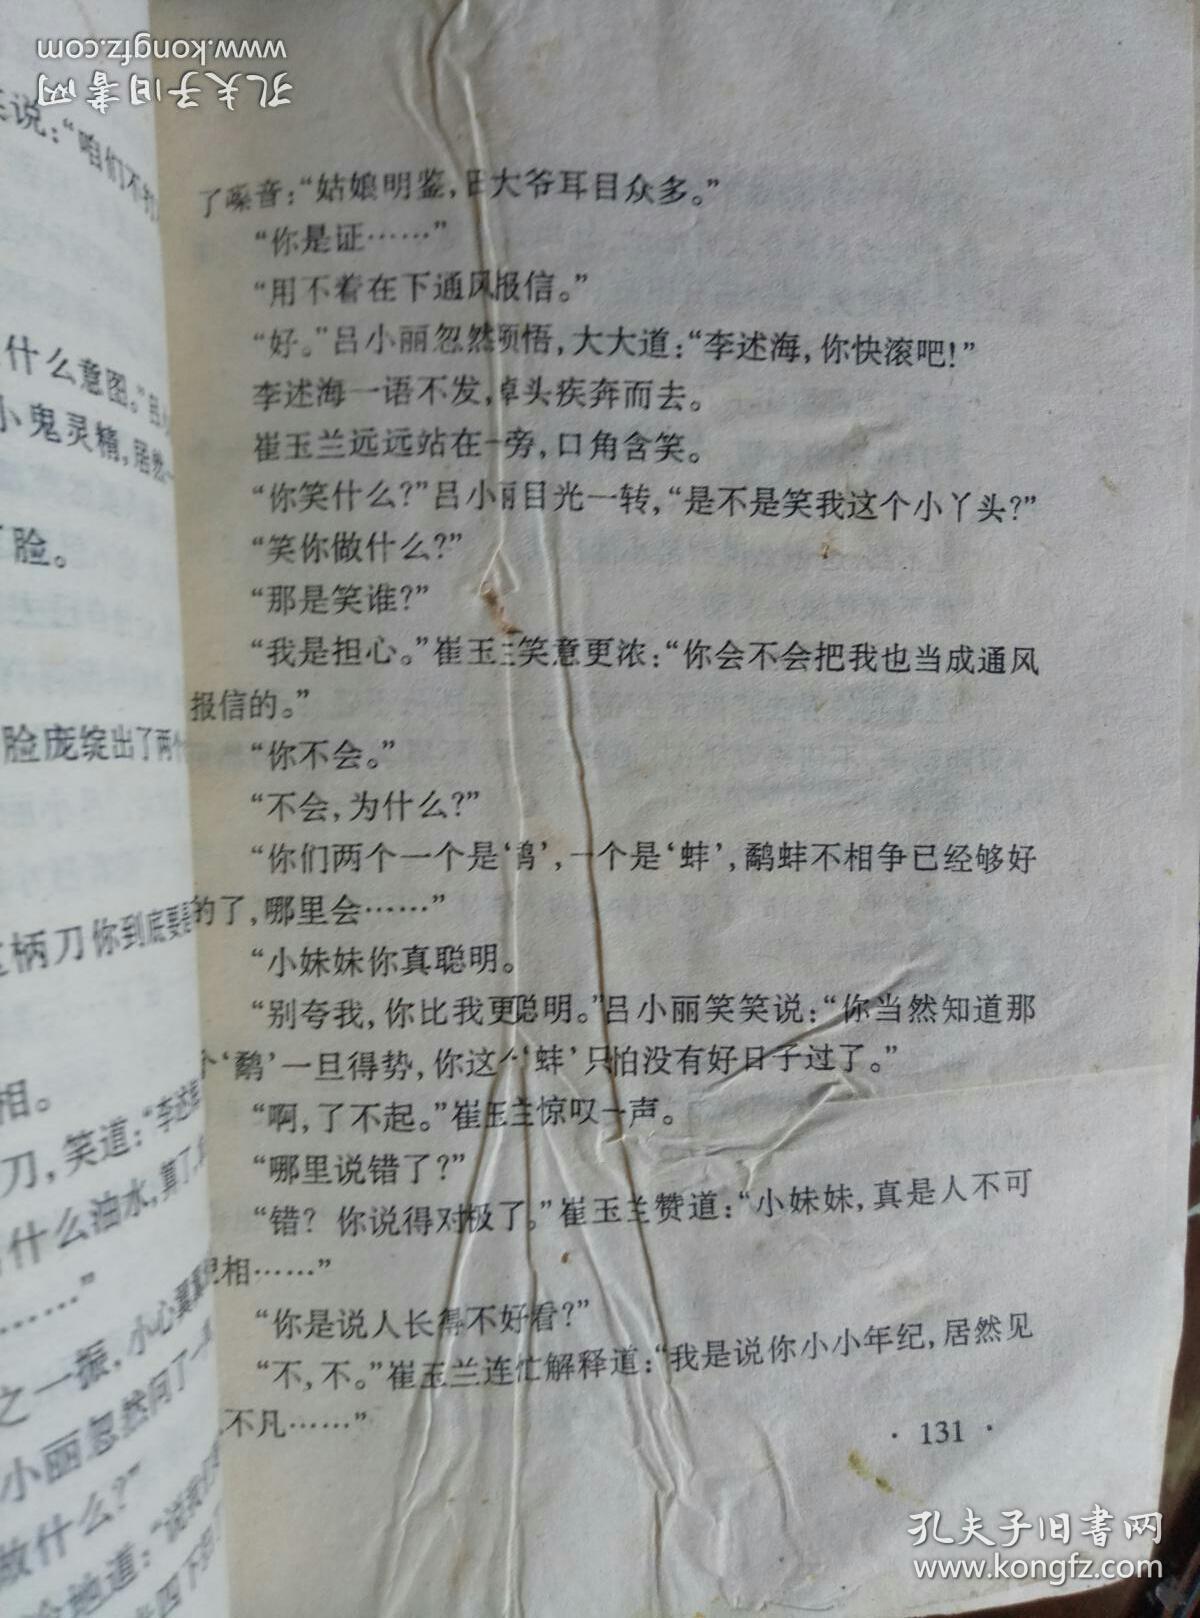 www.kongfz.com
孔夫子旧书网
说：“咱们不
什么意图。”吕
小鬼灵精，居然
脸。
脸庞绽出了两个
柄刀你到底要
相。
刀，笑道：“李述
什么油水，算了，
……”
之一振，小心翼翼
小丽忽然问了一
做什么？”
地道：“说我们
四下
了嗓音：“姑娘明鉴，日大爷耳目众多。”
“你是证……”
“用不着在下通风报信。”
“好。”吕小丽忽然顿悟，大大道：“李述海，你快滚吧！”
李述海一语不发，掉头疾奔而去。
崔玉兰远远站在一旁，口角含笑。
“你笑什么？”吕小丽目光一转，“是不是笑我这个小丫头？”
“笑你做什么？”
“那是笑谁？”
“我是担心。”崔玉兰笑意更浓：“你会不会把我也当成通风
报信的。”
“你不会。”
“不会，为什么？”
“你们两个一个是‘鹬’，一个是‘蚌’，鹬蚌不相争已经够好
的了，哪里会……”
“小妹妹你真聪明。
“别夸我，你比我更聪明。”吕小丽笑笑说：“你当然知道那
个‘鹬’一旦得势，你这个‘蚌’只怕没有好日子过了。”
“啊，了不起。”崔玉兰惊叹一声。
“哪里说错了？”
“错？你说得对极了。”崔玉兰赞道：“小妹妹，真是人不可
貌相……”
“你是说人长得不好看？”
“不，不。”崔玉兰连忙解释道：“我是说你小小年纪，居然见
不凡……”
· 131 ·
孔夫子旧书网
www.kongfz.com